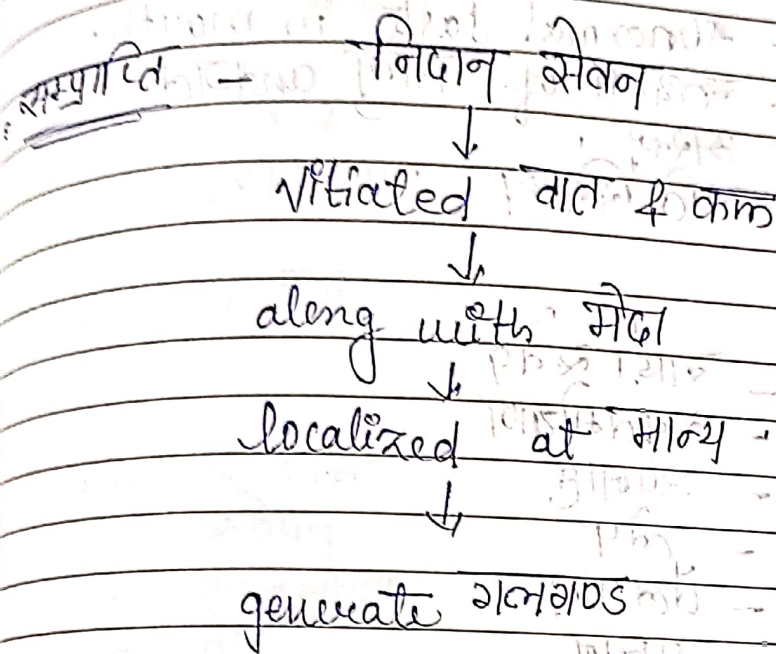 सम्प्राप्ति - निदान सेवन
↓
Vitiated वात & कफ
↓
along with मेदा
↓
localized at मान्य
↓
generate गलगण्ड